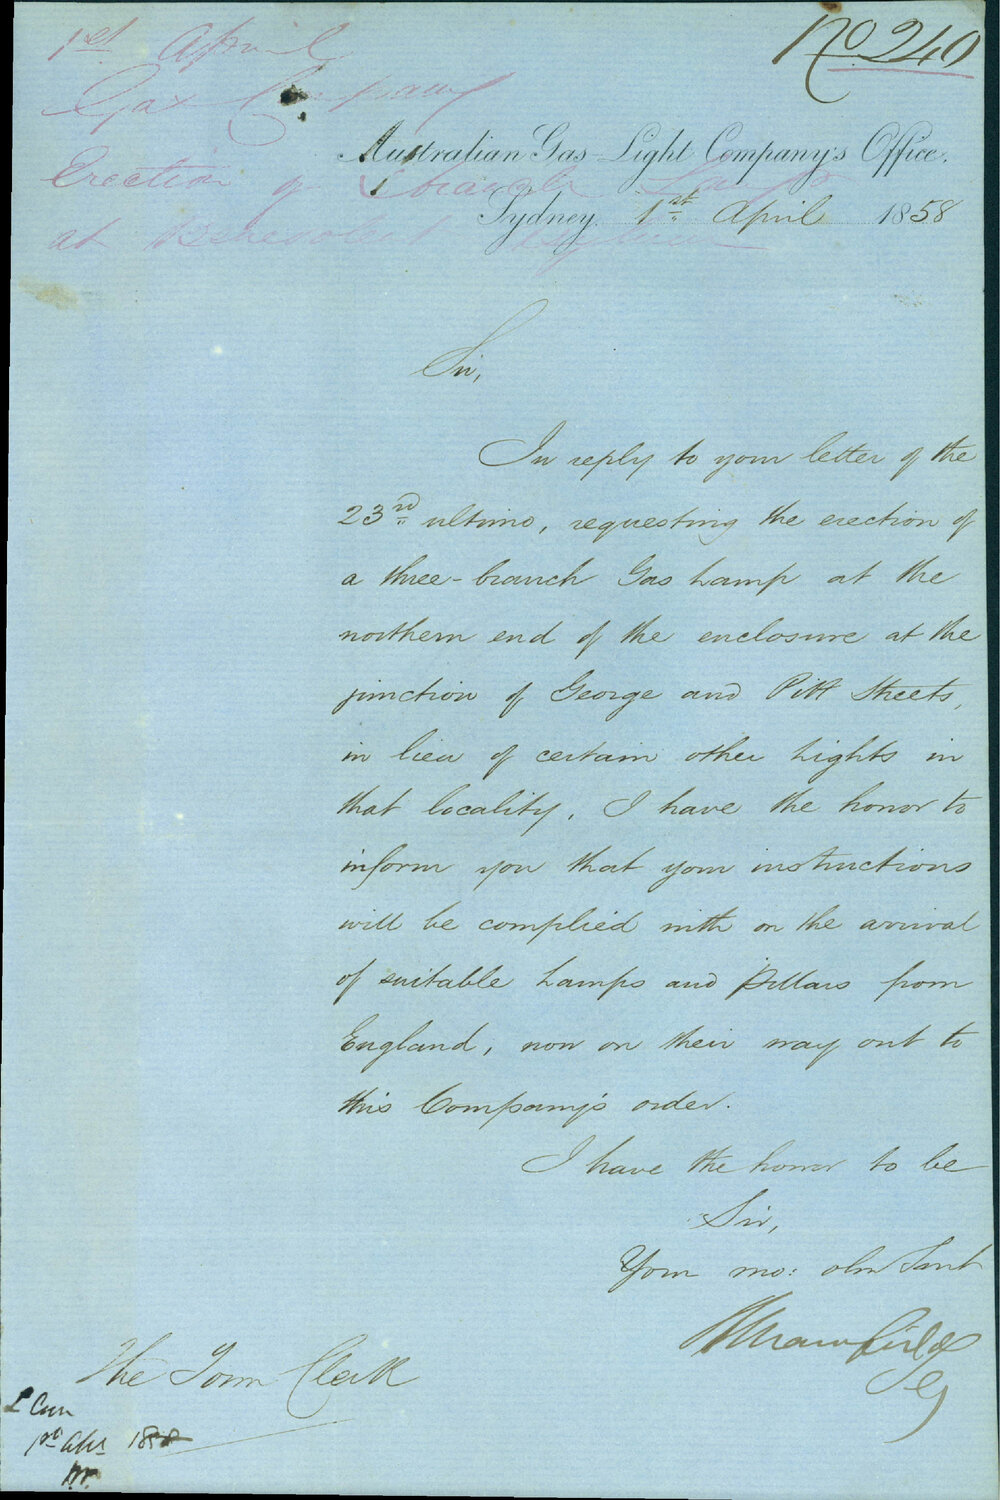 No 240
1st April
Gas Company
Erection of 3 branch Lamp
at Benevolent Asylum
Australian Gas-Light Company's Office.
Sydney 1st April 1858
Sir,
In reply to your letter of the
23rd ultimo, requesting the erection of
a three-branch Gas Lamp at the
northern end of the enclosure at the
junction of George and Pitt Streets,
in lieu of certain other Lights in
that locality, I have the honor to
inform you that your instructions
will be complied with on the arrival
of suitable Lamps and Pillars from
England, now on their way out to
this Company's order.
I have the honor to be
Sir,
Your mo: obt Servt
The Town Clerk
1st Apl 1858